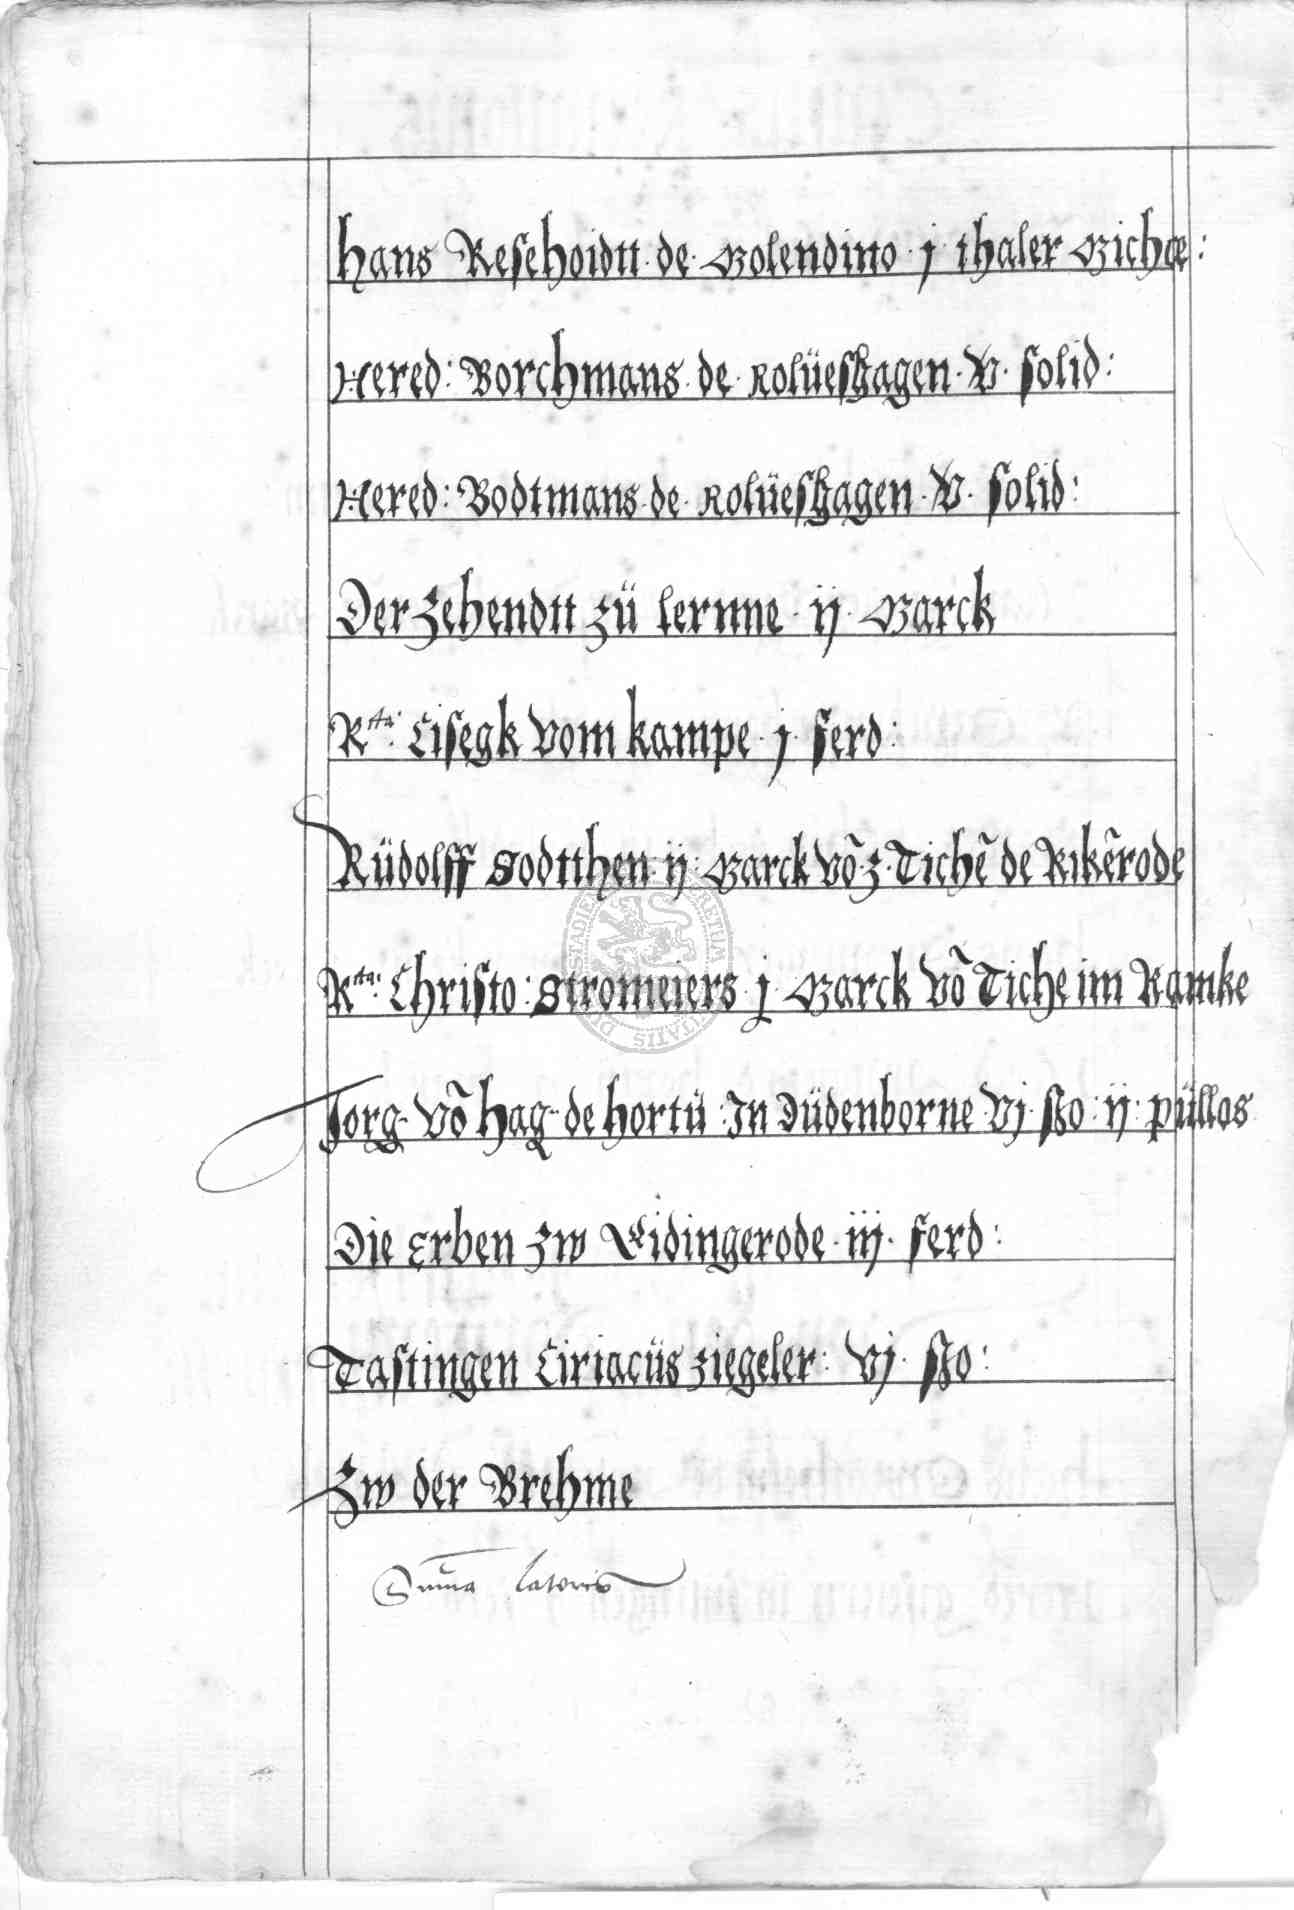 hans Resehoidtt de Molendino j thaler Miche :
Hered: Borchmans de Rolüeshagen V solid:
Hered: Bodtmans de Rolüeshagen V solid:
Der Zehendtt zü Lernne ij Marck
Rta: Cisegk Vom kampe j ferd:
Rüdolff Sodtthen ij Marck Võ z Tichẽ de Rikẽrode
Rta: Christo: Stromeiers j Marck Võ Tiche im Ramke
Jorg Võ Hag de hortü In Düdenborne Vj ßo ij püllos
Die Erben Zw Eidingerode iij ferd:
Tastingen Ciriacüs Ziegeler: Vj ßo:
Zw der Brehme
Suma lateris